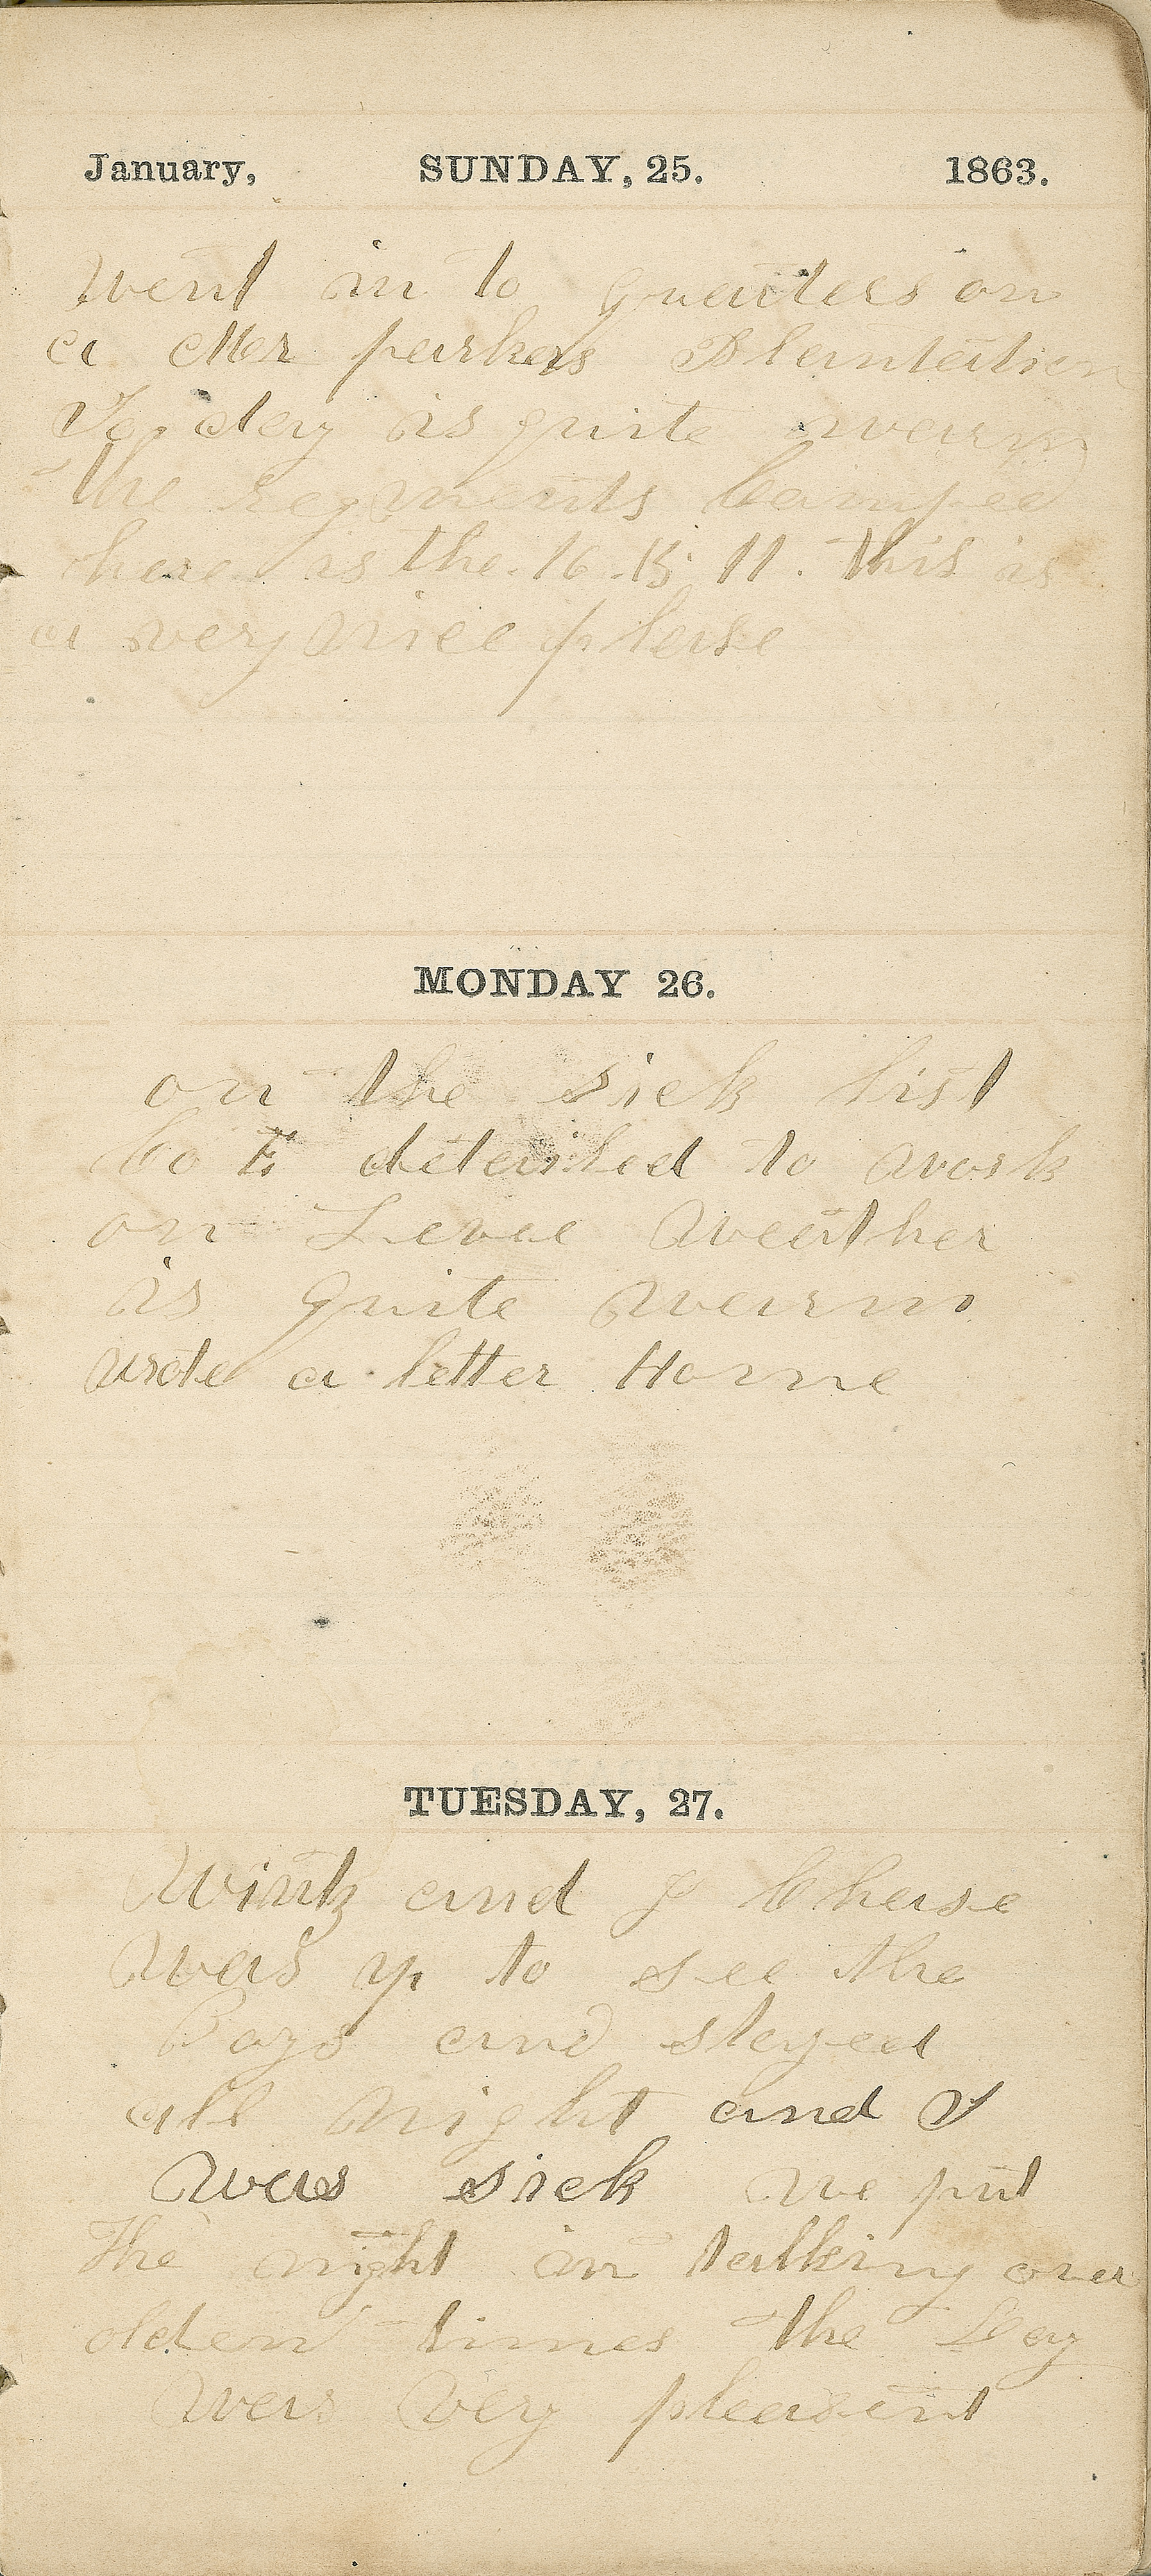 January, SUNDAY, 25. 1863.
went in to quaters on
a Mr parkers Plantation
To day is quite warm
the regments Camped
here is the 16. 15. 11. this is
a very nice plase
MONDAY 26.
on the sick list
Co E detailed to work
on Levee Weather
is quite warm
wrote a letter Home
TUESDAY, 27.
Wintz and J Chase
was up to see the
Boys and stayed
all night and I
was sick we put
the night in talking over
olden times the Day
was very pleasent